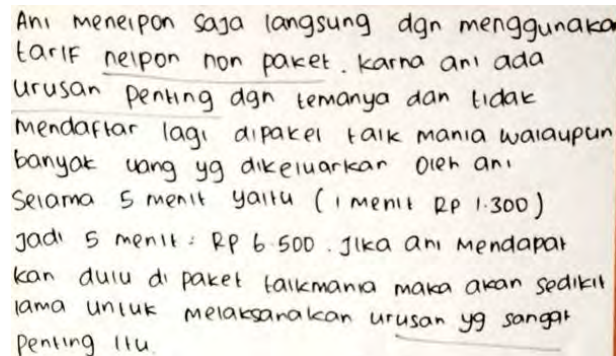 Ani menelpon saja langsung dgn menggunakan
tarif nelpon non paket. karna ani ada
urusan penting dgn temanya dan tidak
mendaftar lagi dipaket talk mania walaupun
banyak uang yg dikeluarkan oleh ani
Selama 5 menit yaitu (1 menit Rp 1.300)
Jadi 5 menit : Rp 6.500. Jika ani mendapat
kan dulu di paket talkmania maka akan sedikit
lama untuk melaksanakan urusan yg sangat
Penting itu.